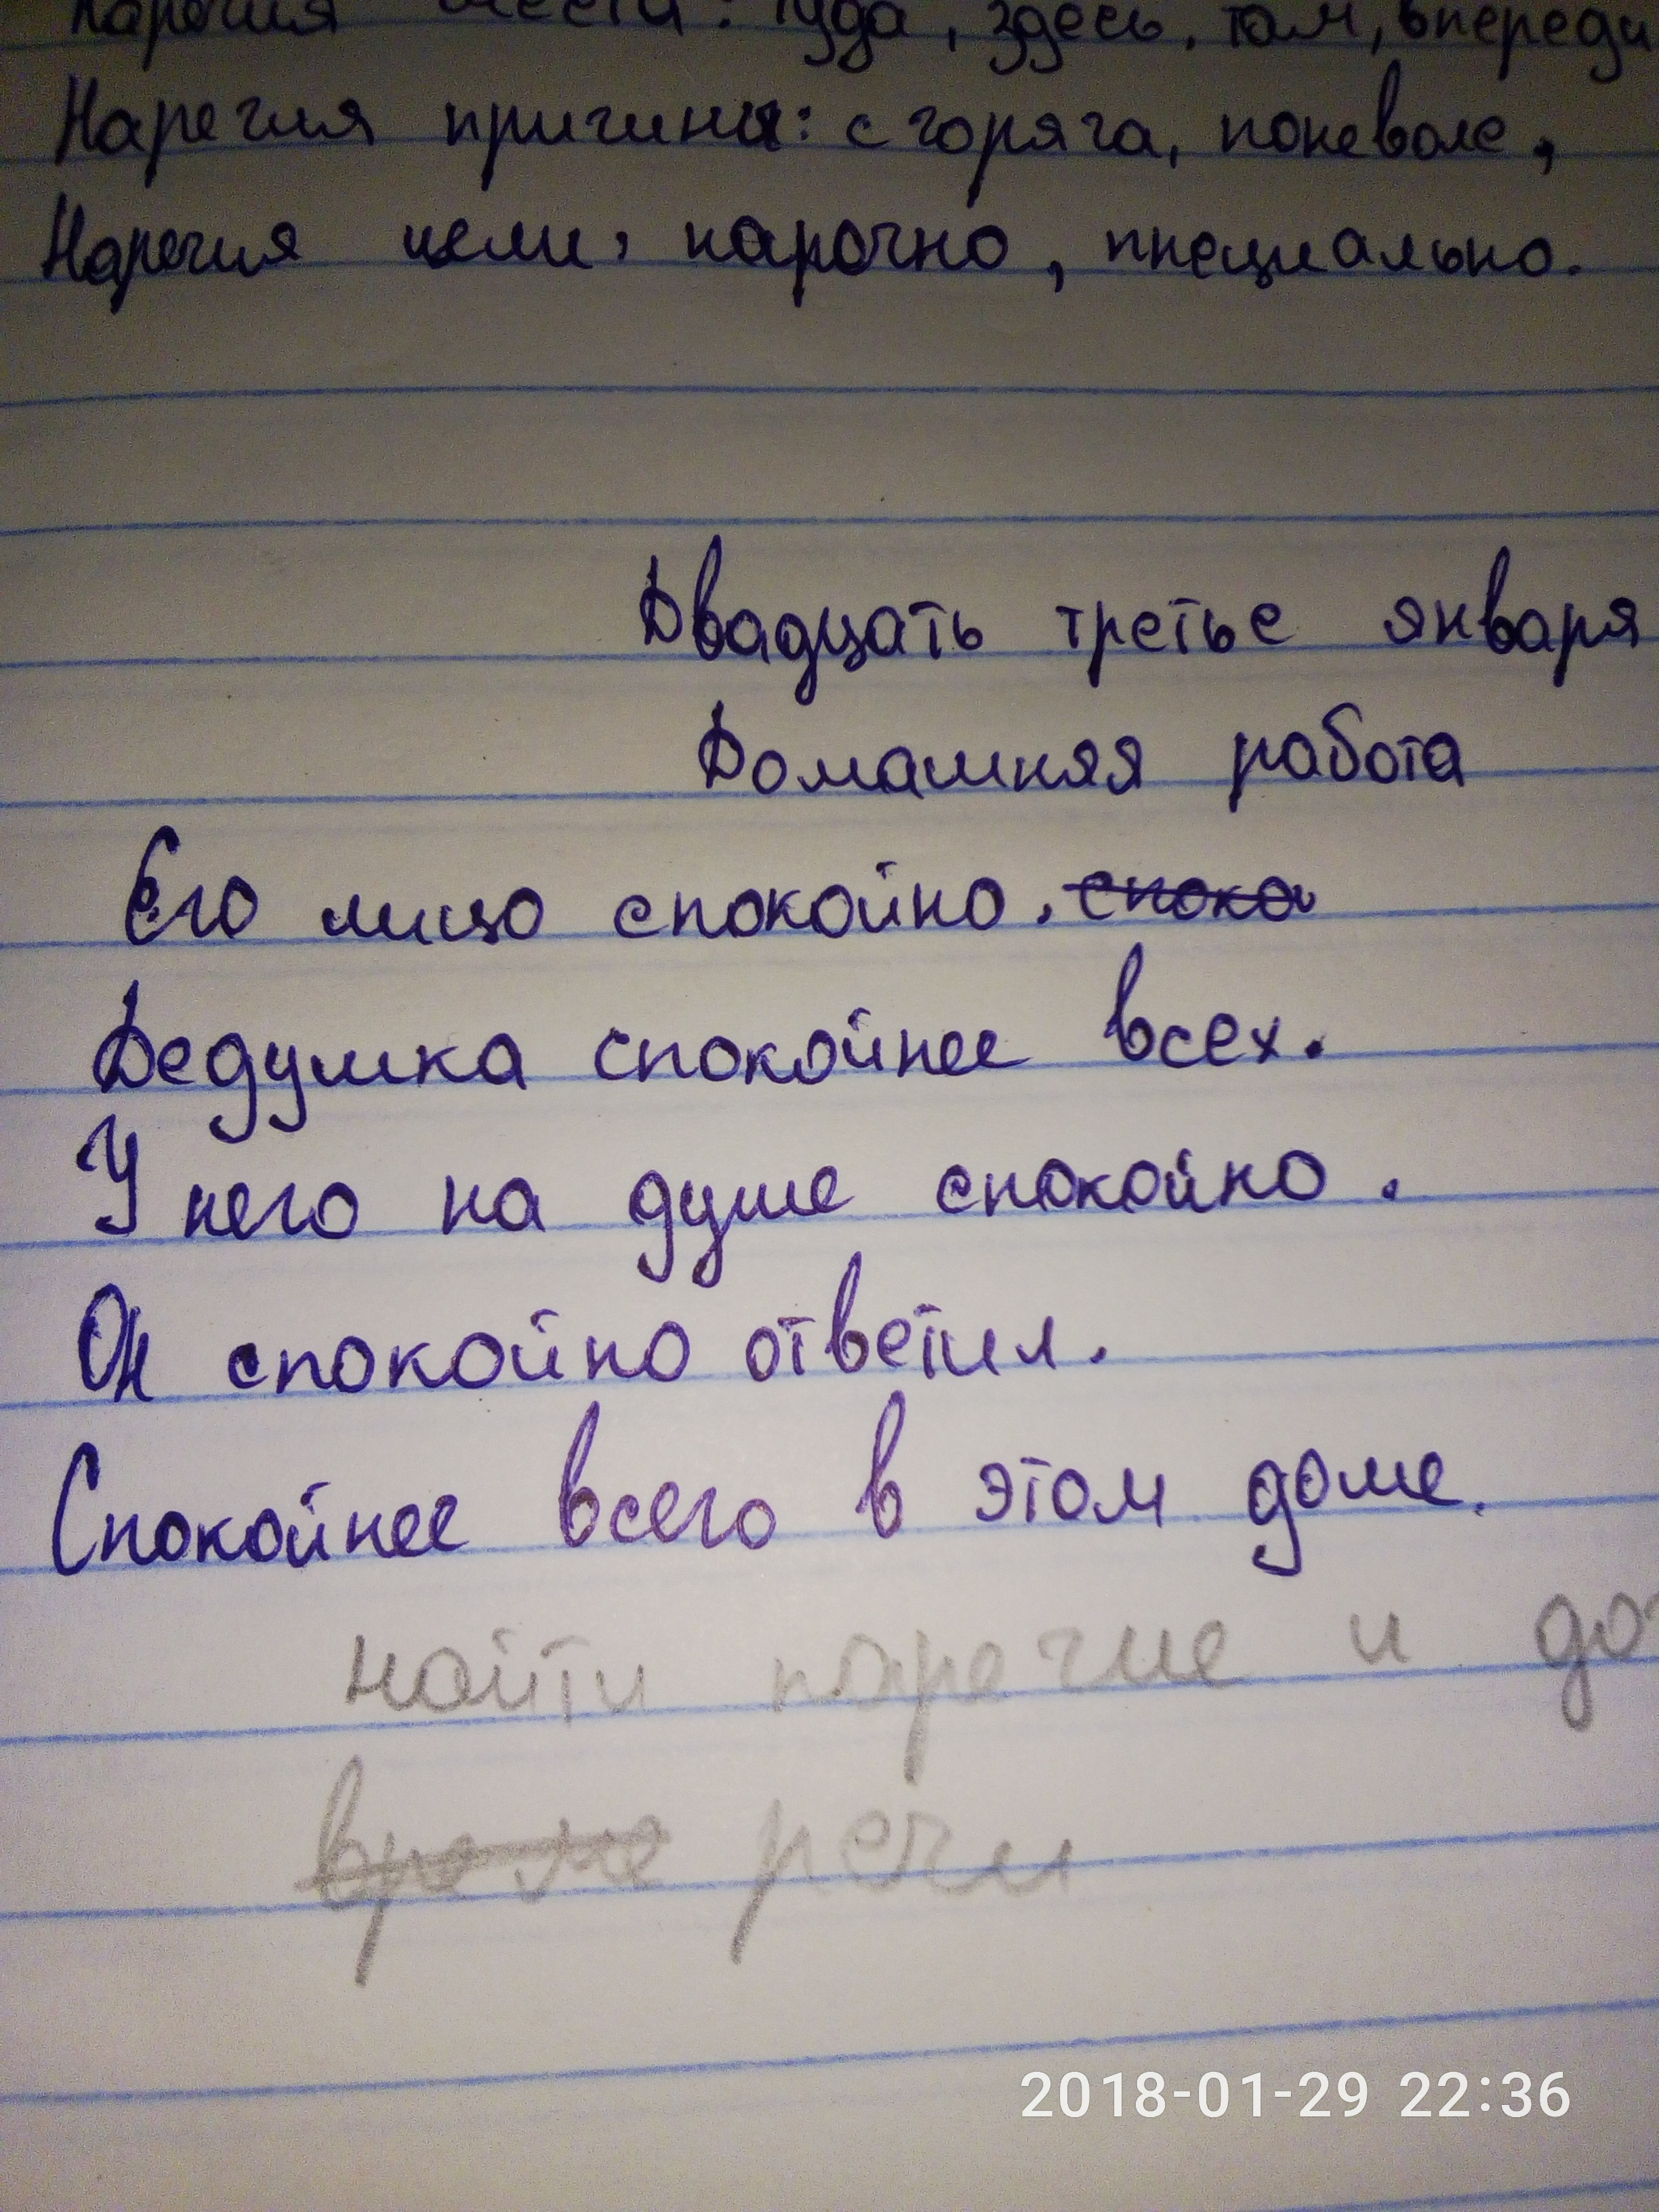 наречия места: туда, здесь, там, впереди
Наречия причины: с горяча, поневоле,
Наречия цели, нарочно, пнециально.
Двадцать третье января
Домашняя работа
Его лицо спокойно. споко
Дедушка спокойнее всех.
У него на душе спокойно.
Он спокойно ответил.
Спокойнее всего в этом доме.
найти наречие и
речи
2018-01-29 22:36